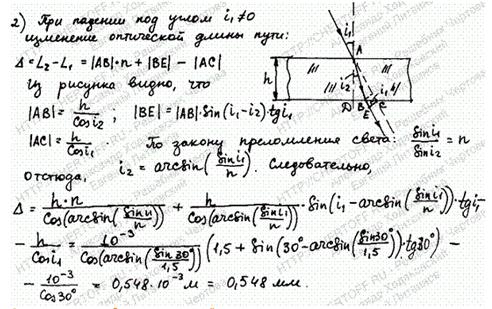 2) При падении под углом i₁≠0
изменение оптической длины пути:
Δ=L₂-L₁=|AB|·n+|BE|-|AC|
Из рисунка видно, что
|AB|=h/Cosi₂; |BE|=|AB|·Sin(i₁-i₂)·tgi₁
|AC|=h/Cosi₁. По закону преломления света: Sini₁/Sini₂=n
отсюда, i₂=arcSin(Sini₁/n). Следовательно,
Δ=h·n/Cos(arcSin(Sini₁/n))+h/Cos(arcSin(Sini₁/n))·Sin(i₁-arcSin(Sini₁/n))·tgi₁-
-h/Cosi₁=10⁻³/Cos(arcSin(Sin30°/1,5))(1,5+Sin(30°-arcSin(Sin30°/1,5))·tg30°)-
-10⁻³/Cos30°=0,548·10⁻³м=0,548 мм.
i₁
A
h
i₂
i₁
D B C
E